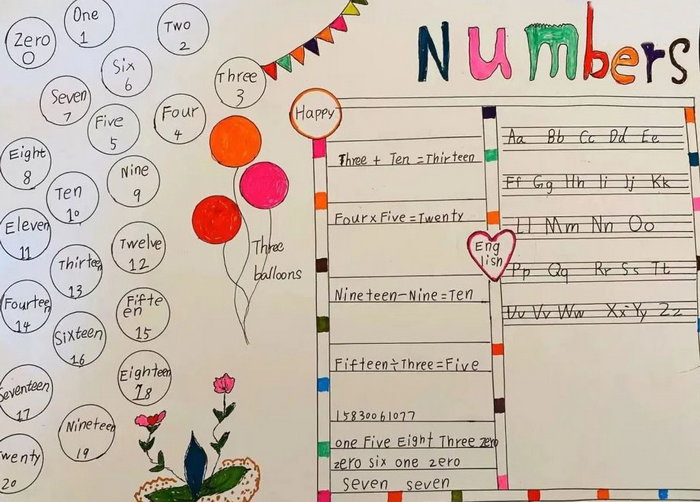 Numbers
Zero
0
One
1
Two
2
Three
3
Four
4
Five
5
Six
6
Seven
7
Eight
8
Nine
9
Ten
10
Eleven
11
Twelve
12
Thirteen
13
Fourteen
14
Fifte
en
15
Sixteen
16
Seventeen
17
Eighteen
18
Nineteen
19
wenty
20
Three
balloons
Happy
Three + Ten = Thirteen
Four x Five = Twenty
Nineteen - Nine = Ten
Fifteen ÷ Three = Five
15830061077
one Five Eight Three zero
zero six one zero
seven seven
Eng
lish
Aa Bb Cc Dd Ee
Ff Gg Hh Ii Jj Kk
Ll Mm Nn Oo
Pp Qq Rr Ss Tt
Uu Vv Ww Xx Yy Zz